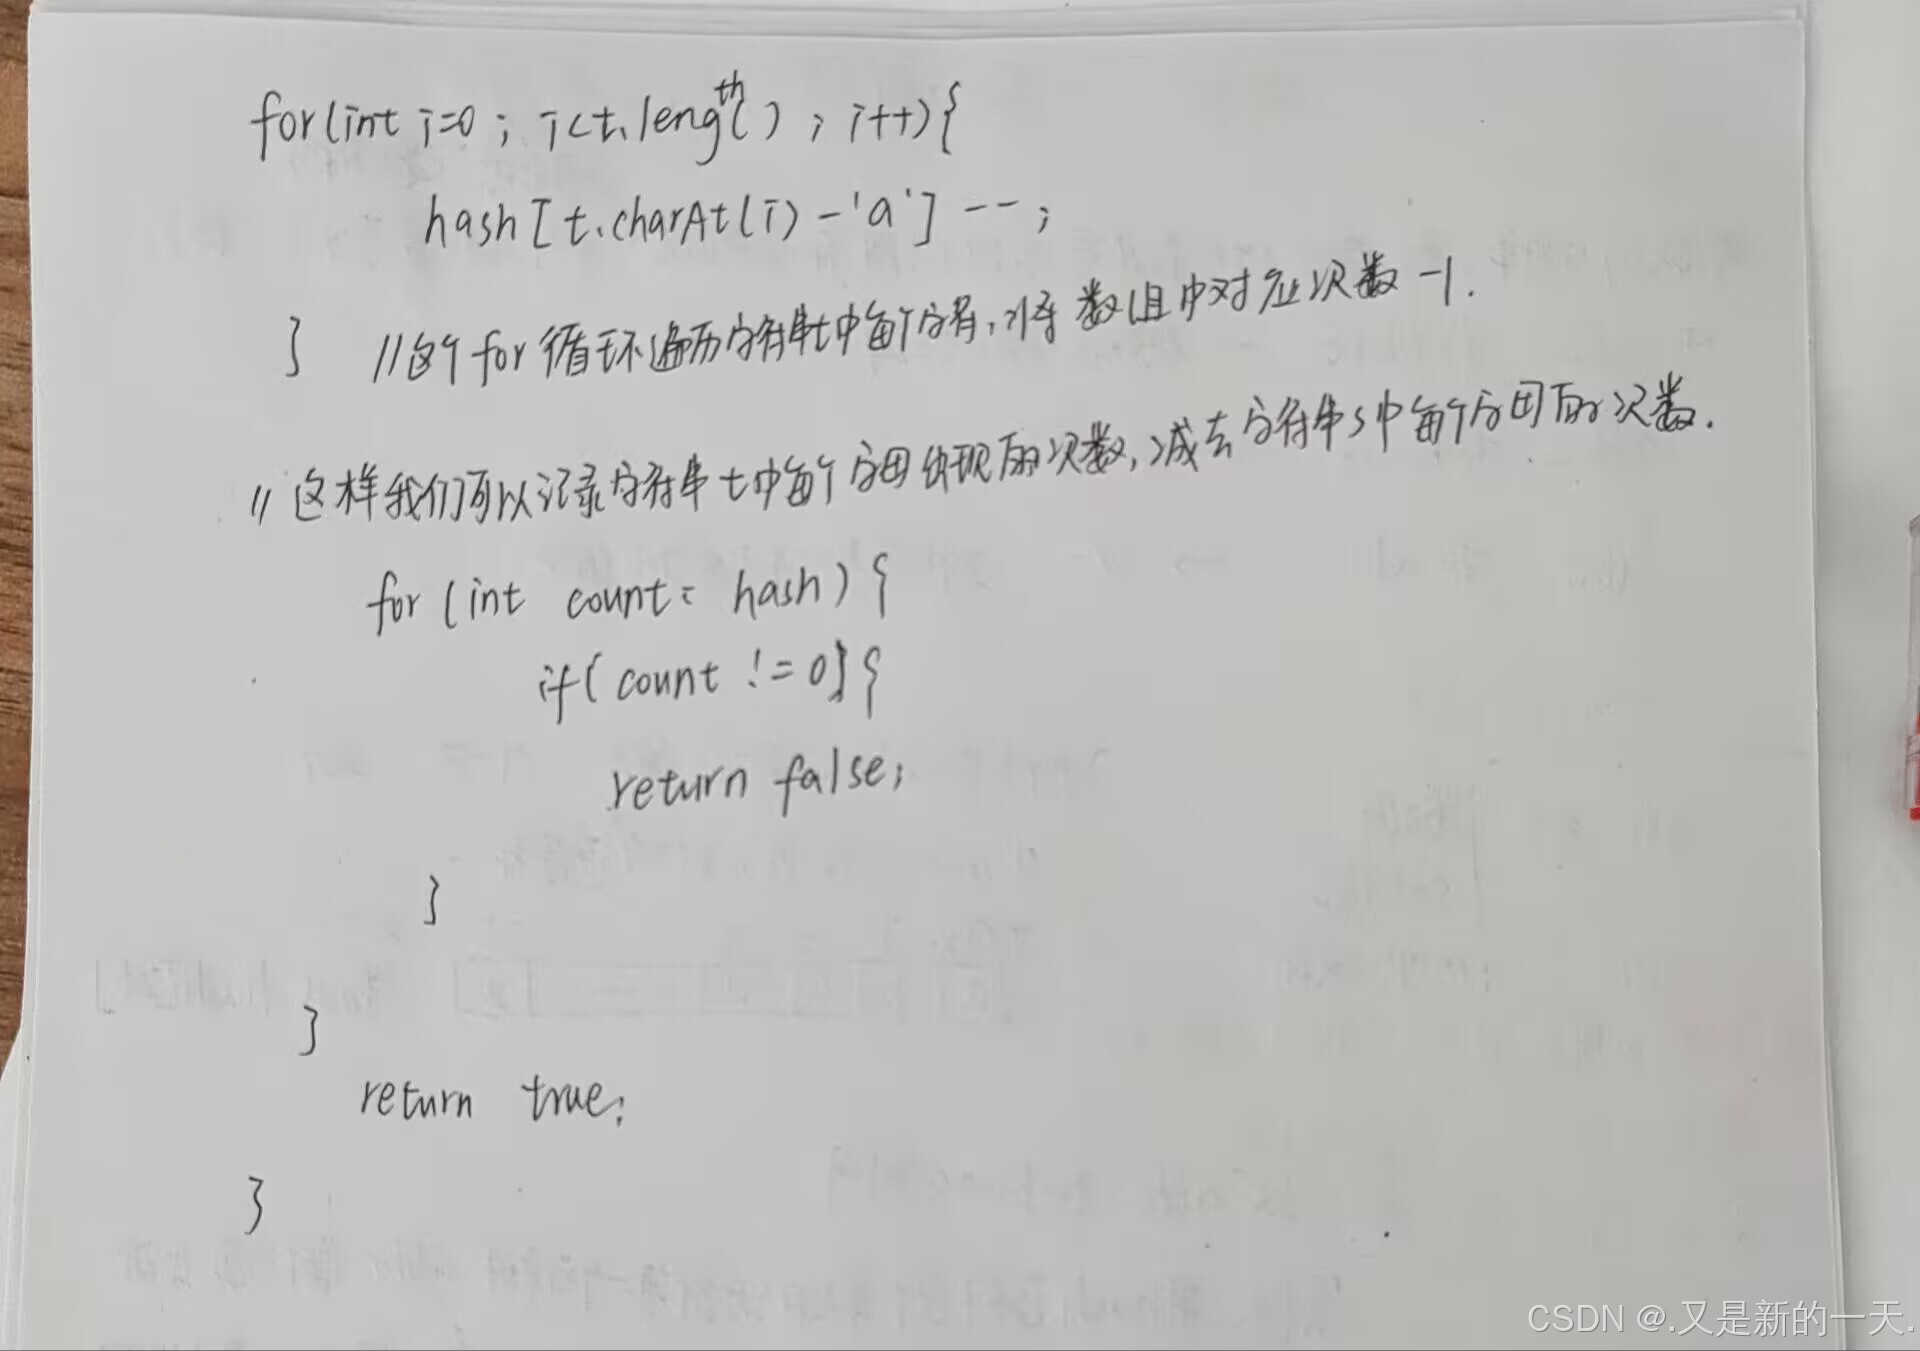 for(int i=0; i<t.length(); i++){
hash[t.charAt(i)-'a']--;
} //这个for循环遍历字符串t中每个字符,将数组中对应次数-1.
//这样我们可以记录字符串t中每个字母出现的次数,减去字符串s中每个字母的次数.
for(int count: hash){
if(count !=0){
return false;
}
}
return true;
}
CSDN @.又是新的一天.